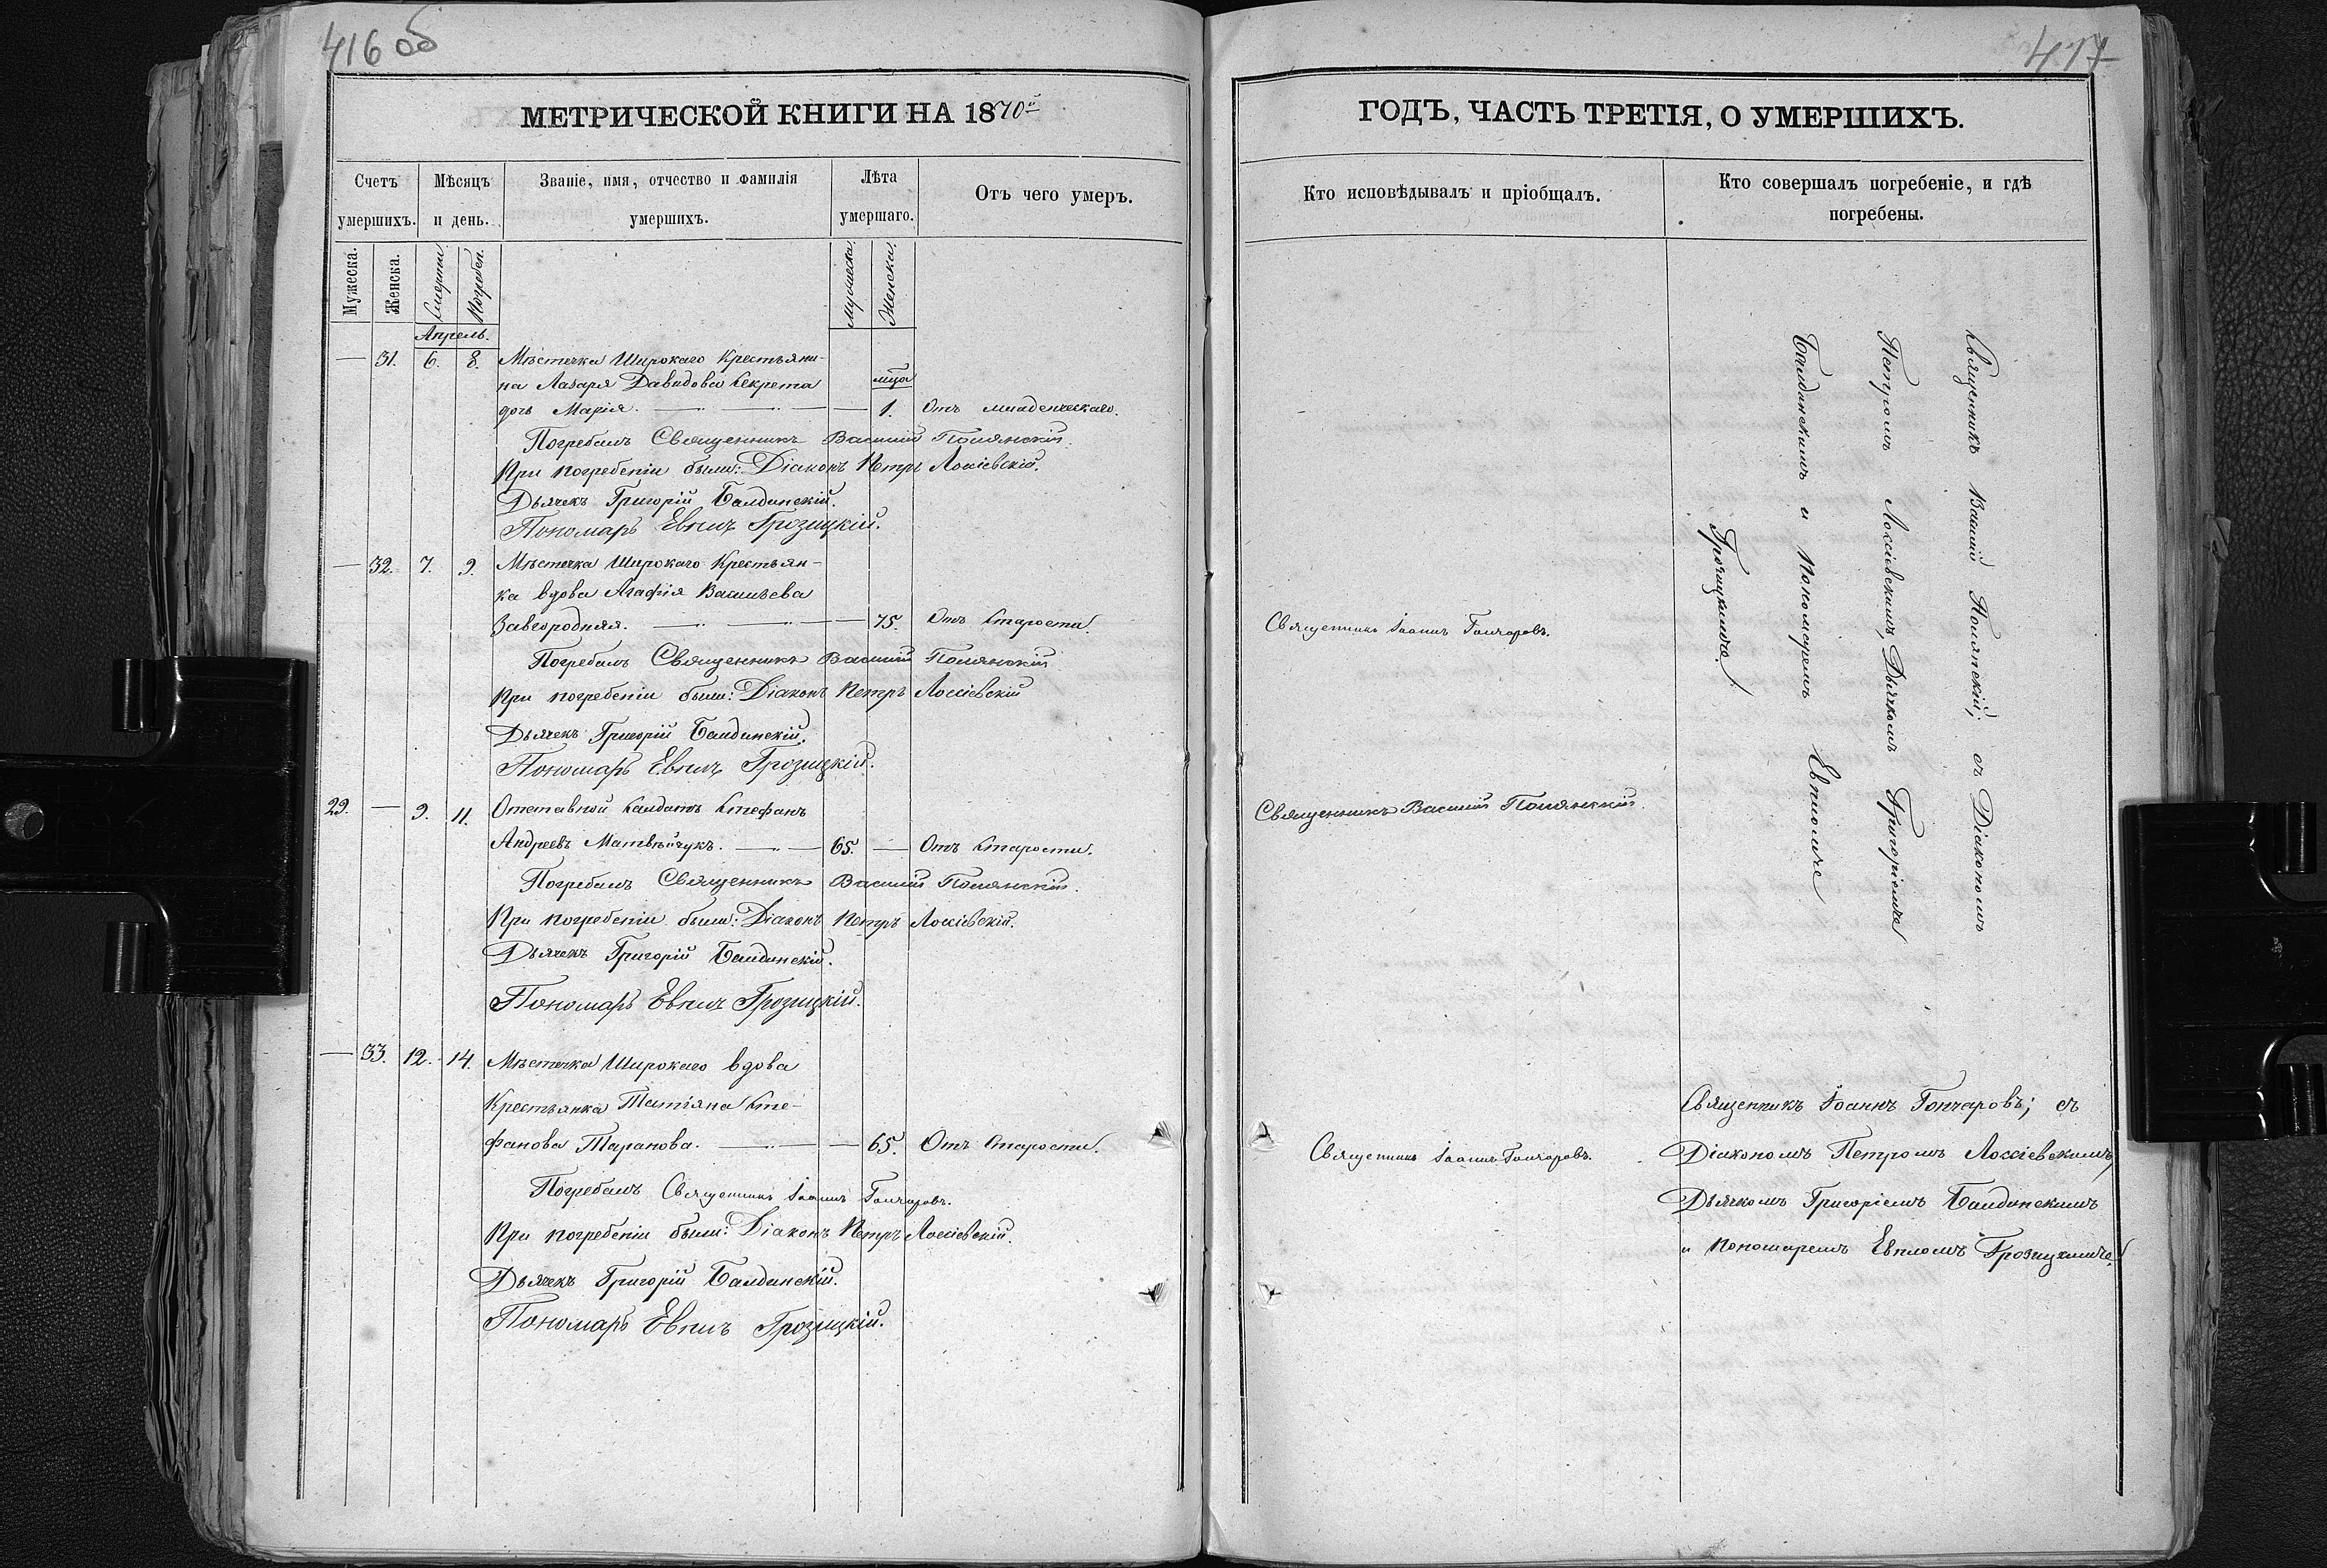 416 об
МЕТРИЧЕСКОЙ КНИГИ НА 1870й
Счетъ умершихъ.
Мѣсяцъ и день.
Званіе, имя, отчество и фамилія умершихъ.
Лѣта умершаго.
Отъ чего умеръ.
Мужеска. Женска. Смерти Погребен. Мужеска Женска.
Апрель.
— 31. 6. 8. Мѣстечка Широкаго Крестьяни-
на Лазаря Давидова Секрета мца
дочь Марія. — — — 1. Отъ младенческаго.
Погребалъ Священникъ Василій Полянскій.
При погребеніи были: Діаконъ Петръ Лоссіевскій.
Дьячекъ Григорій Балдинскій.
Пономарь Евплъ Грозицкій.
— 32. 7. 9. Мѣстечка Широкаго Крестьян-
ка вдова Агафія Васильева
Завгородняя. — — — 75. Отъ старости.
Погребалъ Священникъ Василій Полянскій
При погребеніи были: Діаконъ Петръ Лоссіевскій
Дьячекъ Григорій Балдинскій.
Пономарь Евплъ Грозицкій.
29. — 9. 11. Отставной Салдатъ Стефанъ
Андреевъ Матвѣйчукъ. — — 65. — Отъ старости.
Погребалъ Священникъ Василій Полянскій.
При погребеніи были: Діаконъ Петръ Лоссіевскій.
Дьячекъ Григорій Балдинскій.
Пономарь Евплъ Грозицкій.
— 33. 12. 14. Мѣстечка Широкаго вдова
Крестьянка Татіяна Сте-
фанова Таранова. — — — 65. Отъ старости.
Погребалъ Священникъ Іоаннъ Гончаровъ.
При погребеніи были: Діаконъ Петръ Лоссіевскій.
Дьячекъ Григорій Балдинскій.
Пономарь Евплъ Грозицкій.
417
ГОДЪ, ЧАСТЬ ТРЕТІЯ, О УМЕРШИХЪ.
Кто исповѣдывалъ и пріобщалъ.
Кто совершалъ погребеніе, и гдѣ
погребены.
Священникъ Іоаннъ Гончаровъ.
Священникъ Василій Полянскій.
Священникъ Іоаннъ Гончаровъ.
Священникъ Василій Полянскій; съ Діакономъ
Петромъ Лоссіевскимъ, Дьячкомъ Григоріемъ
Балдинскимъ и Пономаремъ Евпломъ
Грозицкимъ.
Священникъ Іоаннъ Гончаровъ; съ
Діакономъ Петромъ Лоссіевскимъ,
Дьячкомъ Григоріемъ Балдинскимъ
и Пономаремъ Евпломъ Грозицкимъ.